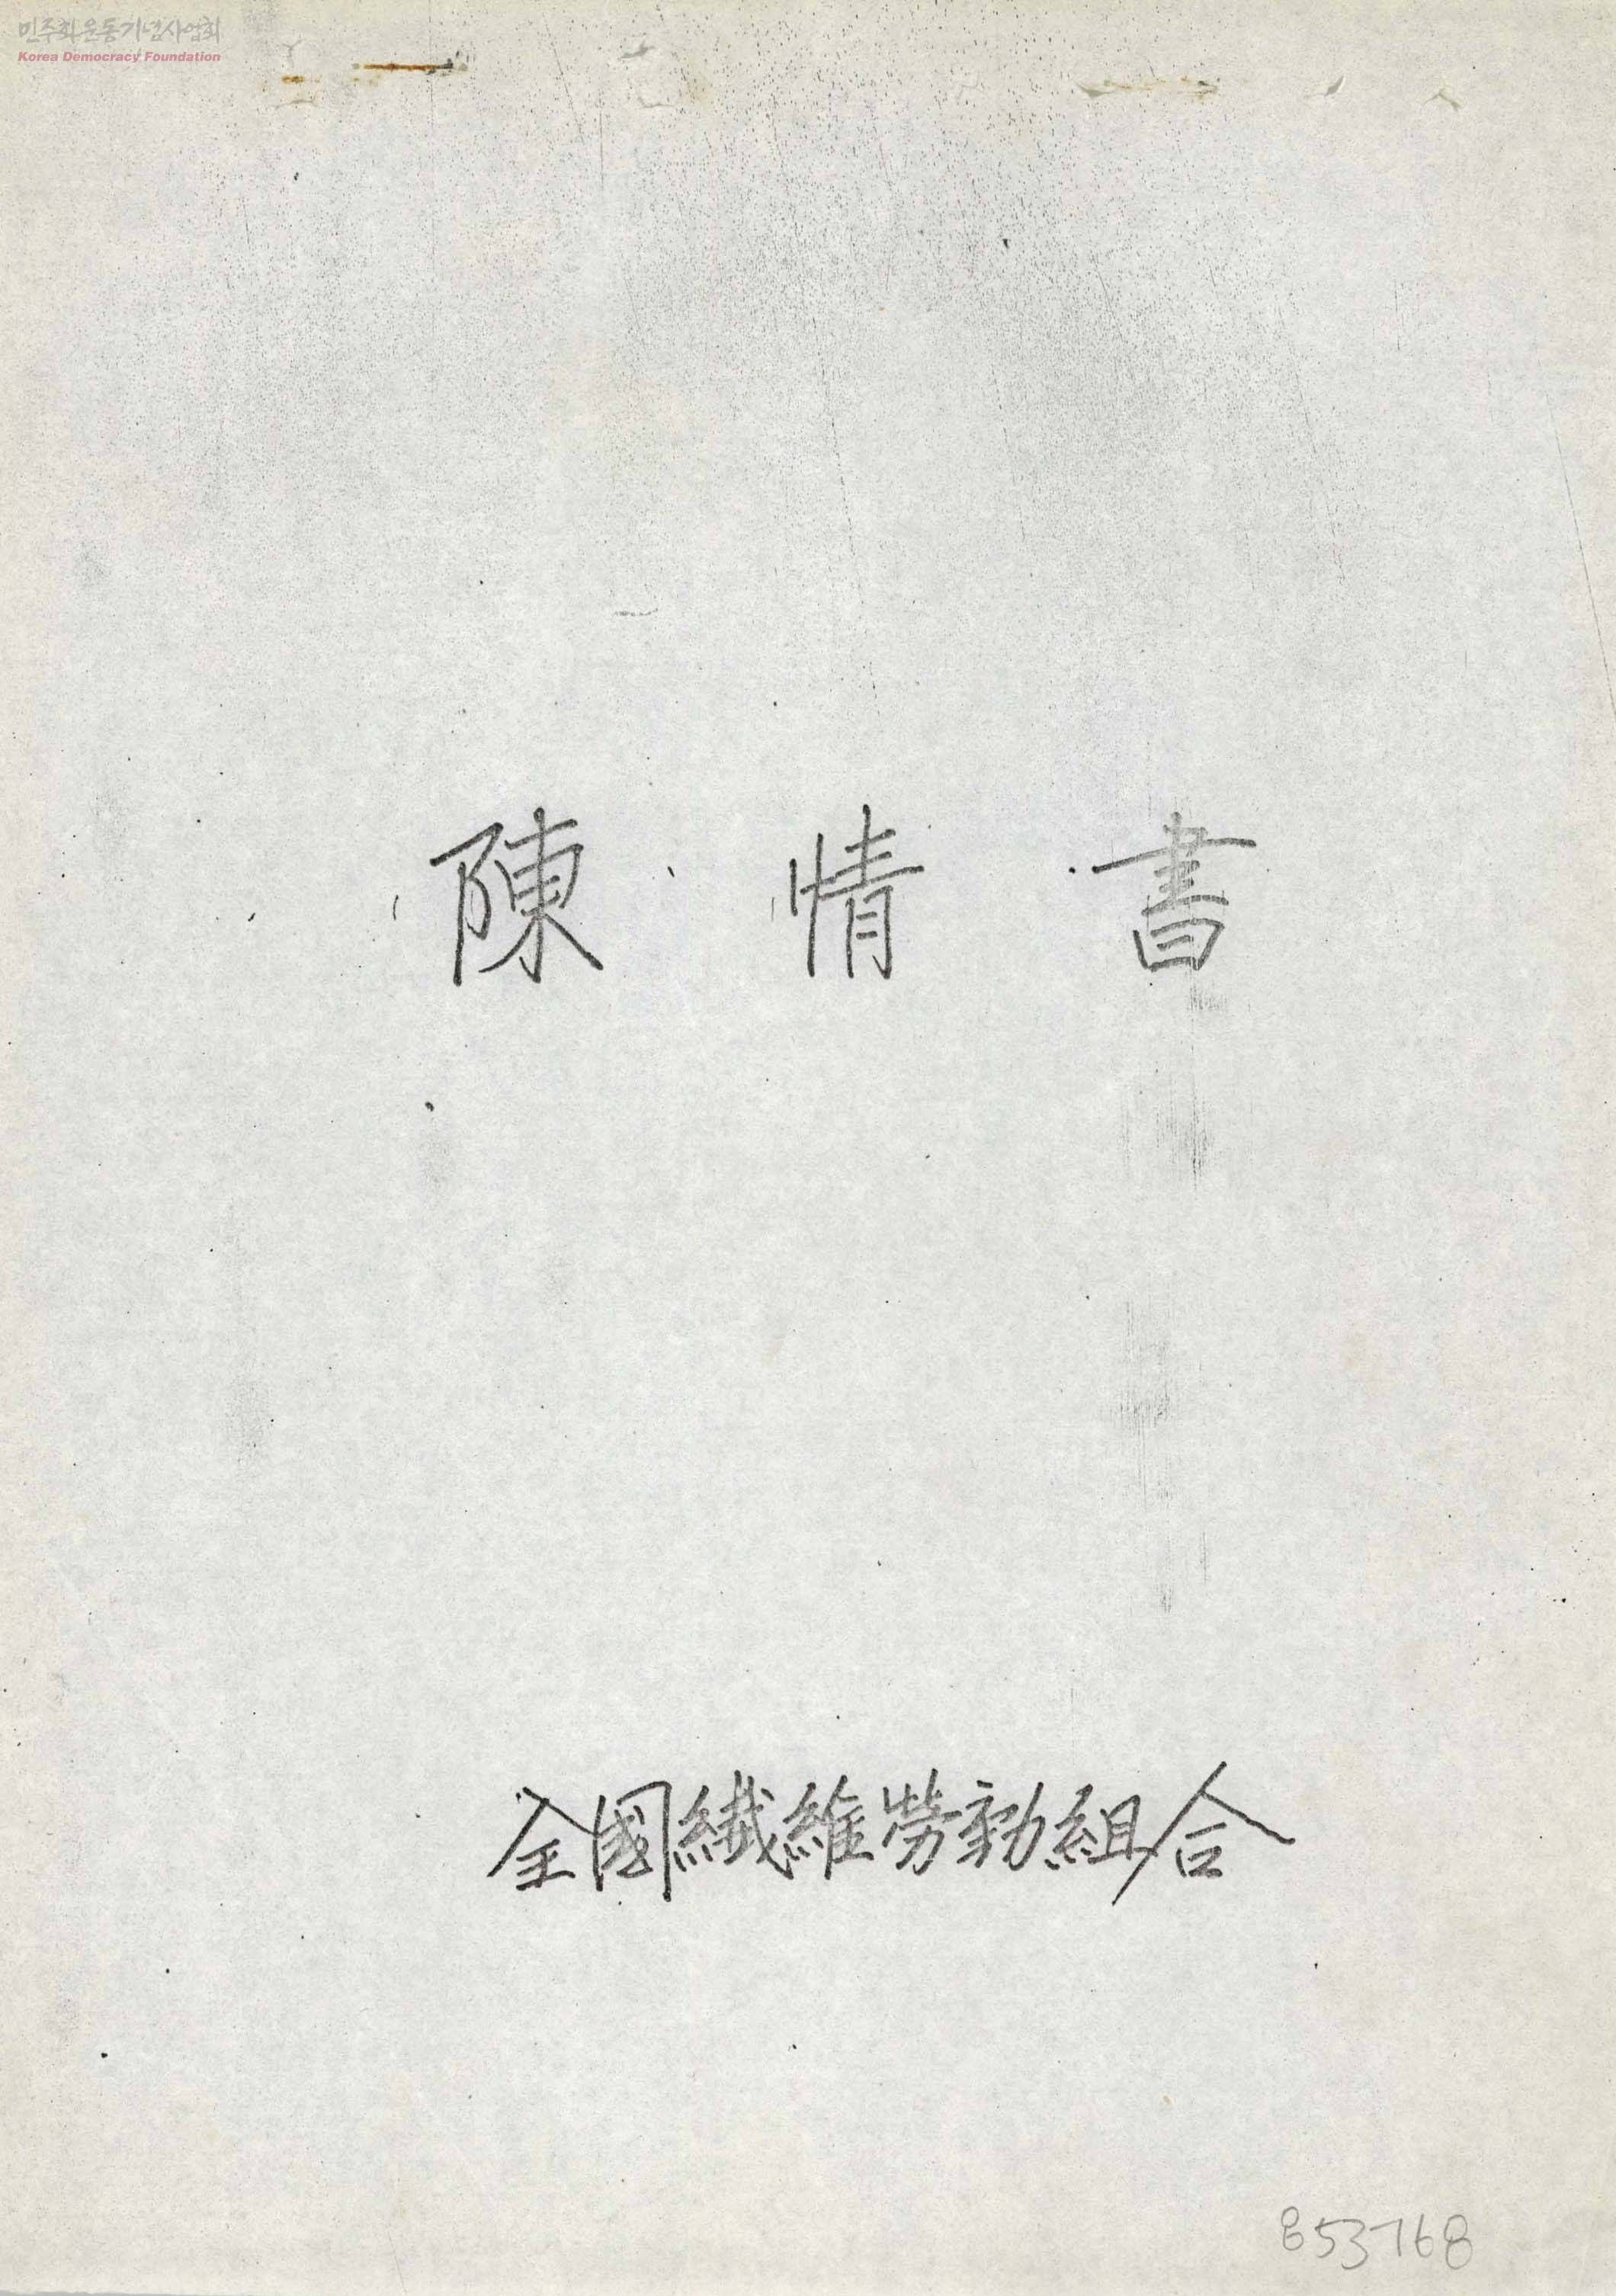 민주화운동기념사업회
Korea Democracy Foundation
陳情書
全國纖維勞動組合
853768